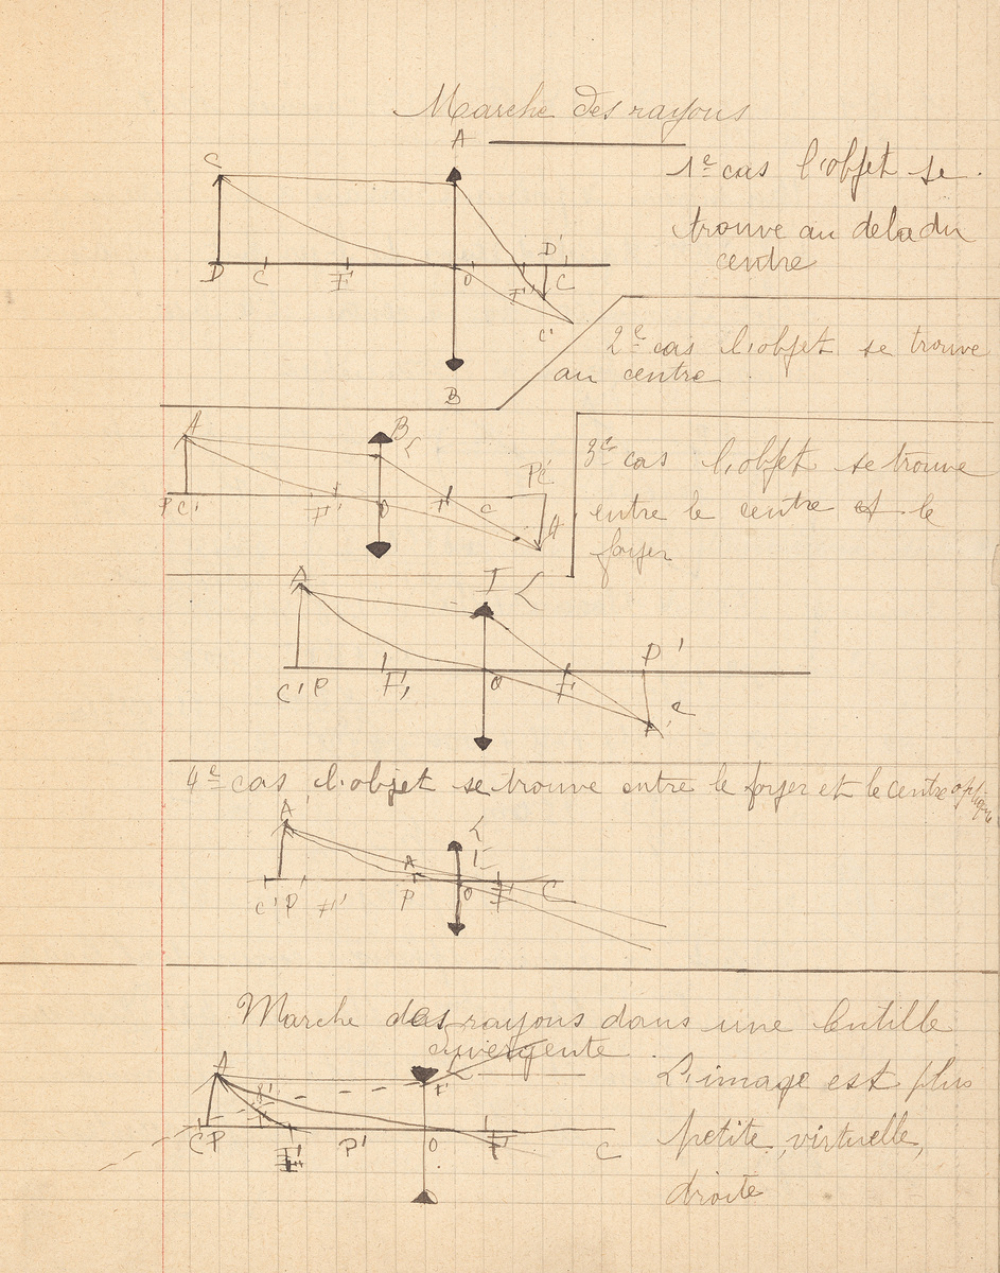 Marche des rayons
A
1e cas l'objet se
trouve au dela du
centre
C
D C F' O F' D' C
C'
B
2e cas l'objet se trouve
au centre
A B
P C' F' O F C P'C'
A
3e cas l'objet se trouve
entre le centre et le
foyer
A I
C' P F' O F P'
A'
4e cas l'objet se trouve entre le foyer et le centre optique
A' A I
C' P' F' P O F C
Marche des rayons dans une lentille
divergente
A I
C P F' P' O F C
L'image est plus
petite, virtuelle,
droite